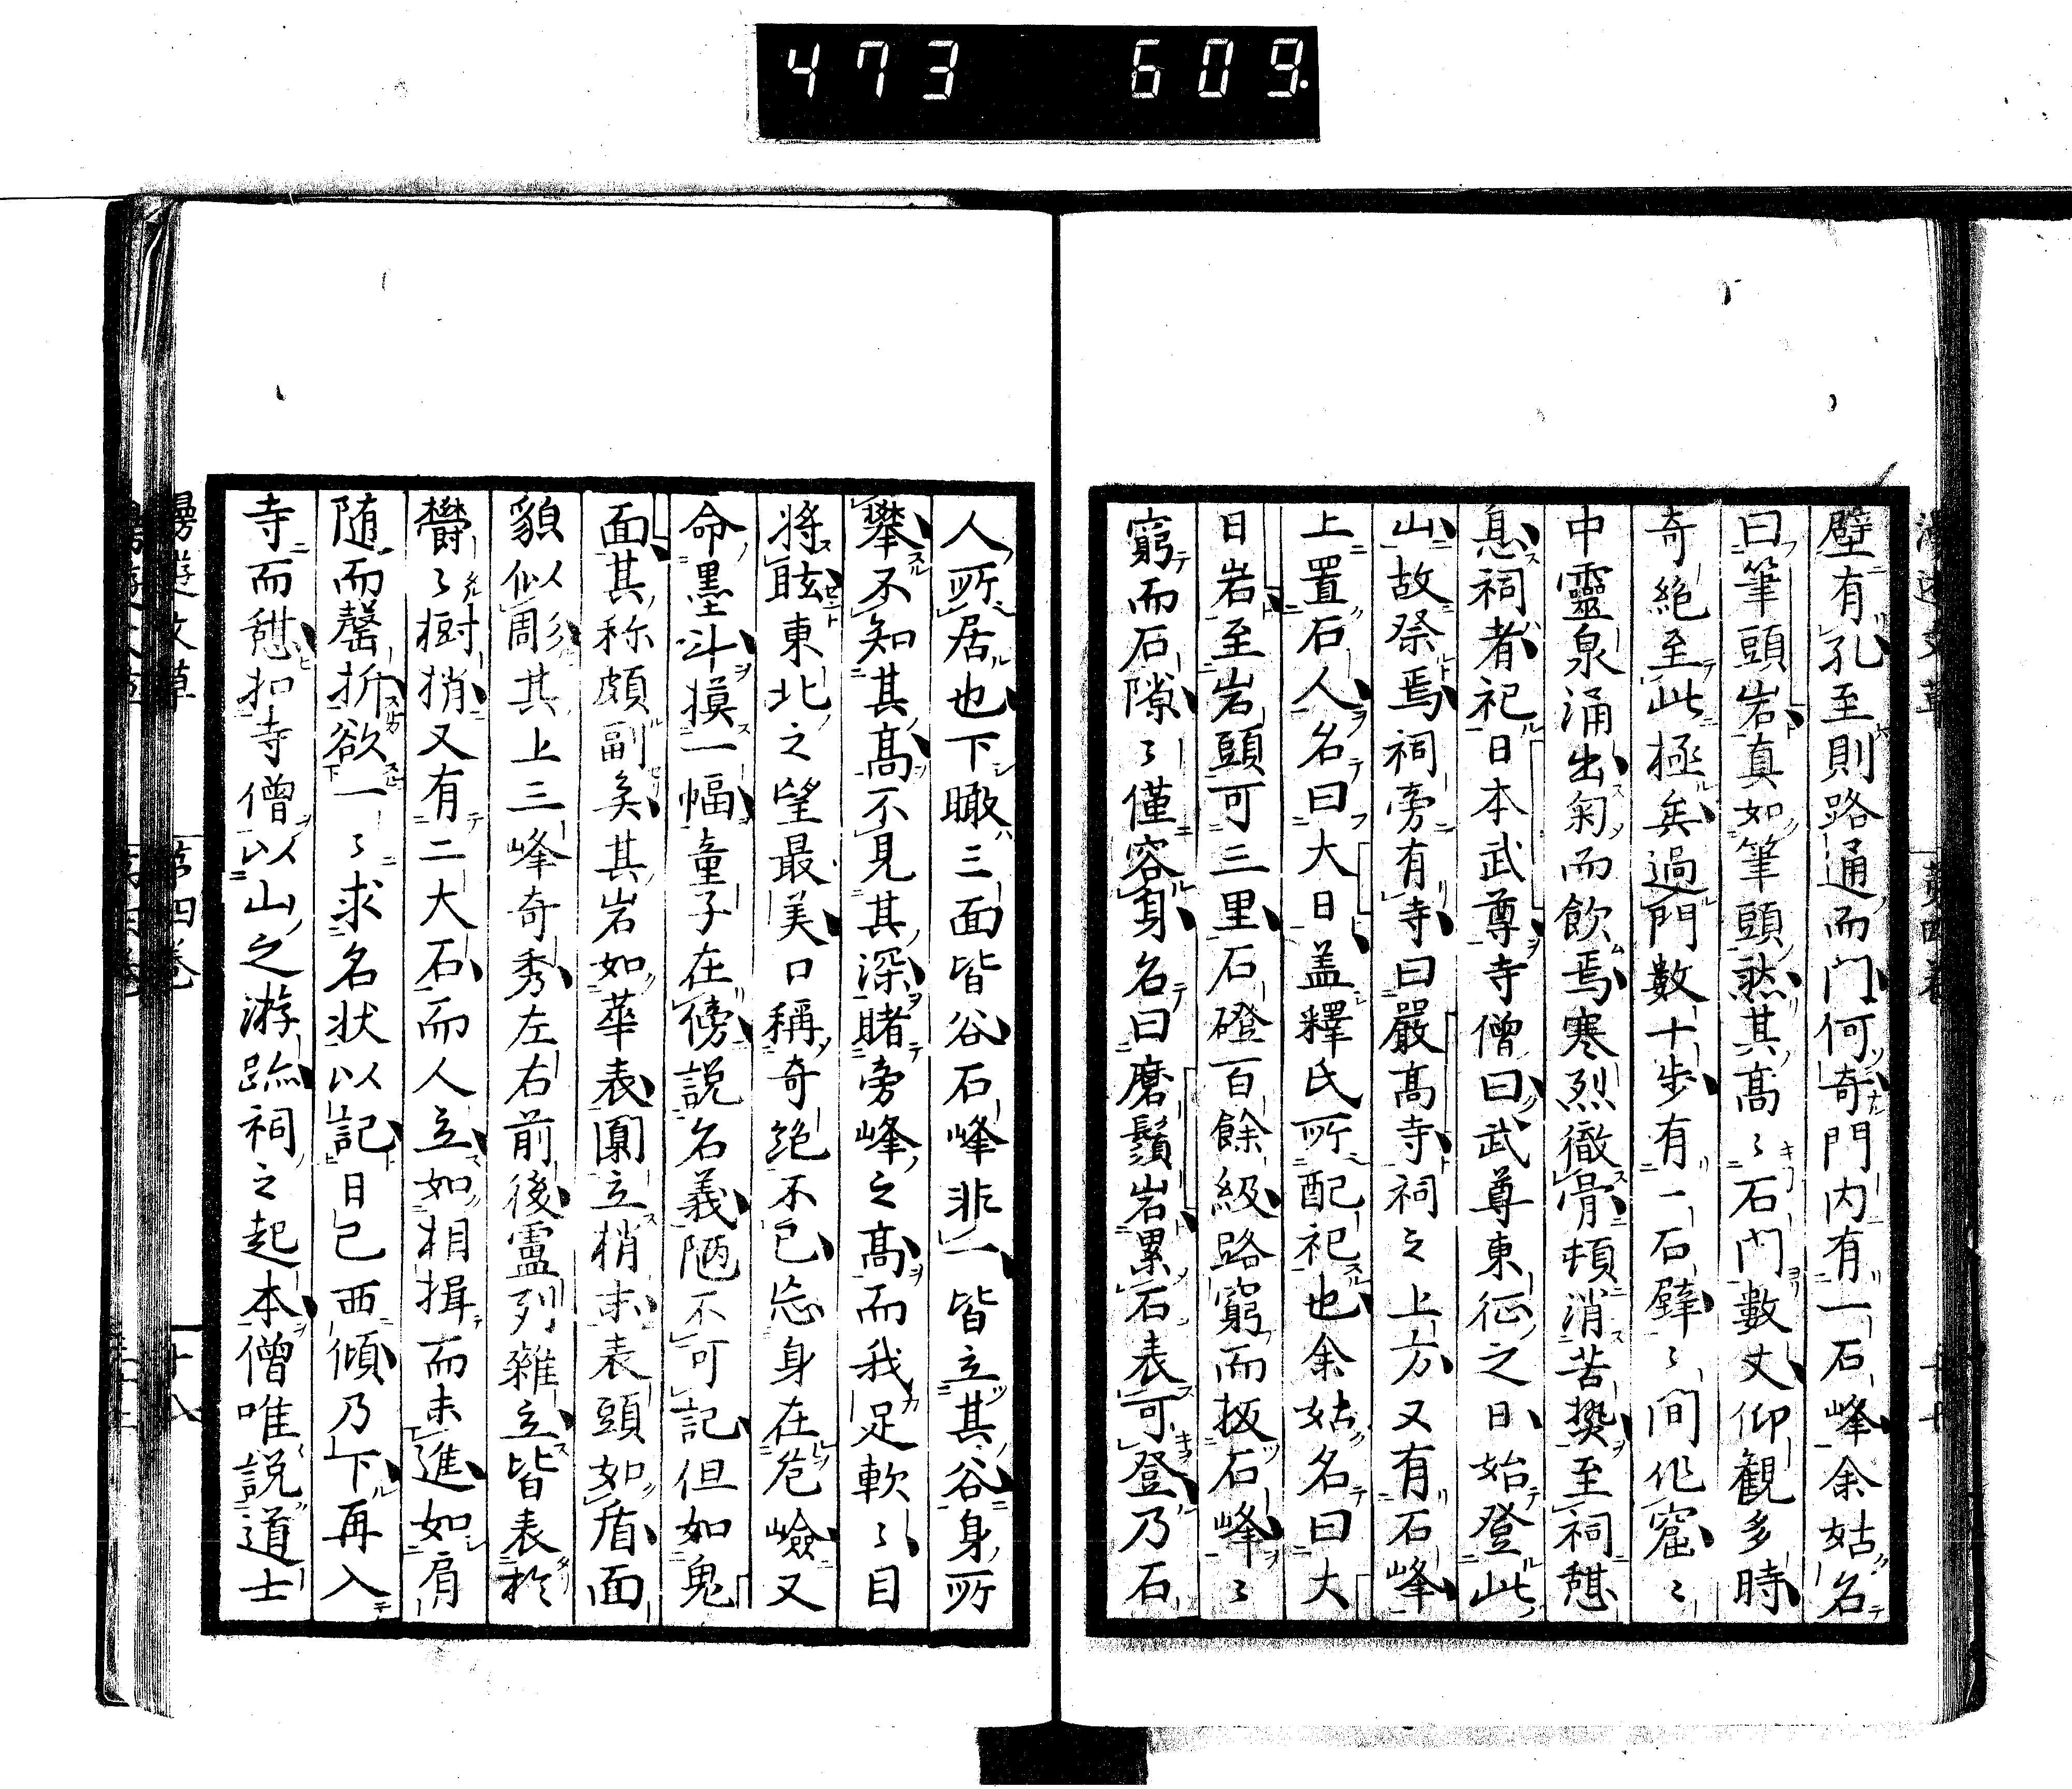 473 609.
壁有孔至則路通而門何奇門内有一石峰余姑名
曰筆頭岩真如筆頭然其髙々石門數丈仰観多時
奇絶至此極矣過門數十步有一石壁々間作窟々
中靈泉涌出匊而飲焉寒烈徹骨頓消苦𤍠至祠憇
息祠者祀日本武尊寺僧曰武尊東征之日始登此
山故祭焉祠旁有寺曰嚴髙寺祠之上方又有石峰
上置石人名曰大日盖釋氏所配祀也余姑名曰大
日岩至岩頭可三里石磴百餘級路窮而扳石峰々
窮而石隙々僅容身名曰磨鬚岩累石表可登乃石
人所居也下瞰三面皆谷石峰非一皆立其谷身所
攀不知其髙不見其深睹旁峰之髙而我足軟々目
将眩東北之望最美口稱奇絶不已忘身在危嶮又
命墨斗摸一幅童子在傍説名義陋不可記但如鬼
面其称頗副矣其岩如華表圓立梢末表頭如盾面
貌似周其上三峰奇秀左右前後盧列雜立皆表於
欝々樹梢又有二大石而人立如相揖而未進如肩
随而罄折欲一々求名状以記日已西傾乃下再入
寺而憇扣寺僧以山之游跡祠之起本僧唯説道士
漫遊文草
第四卷
十八